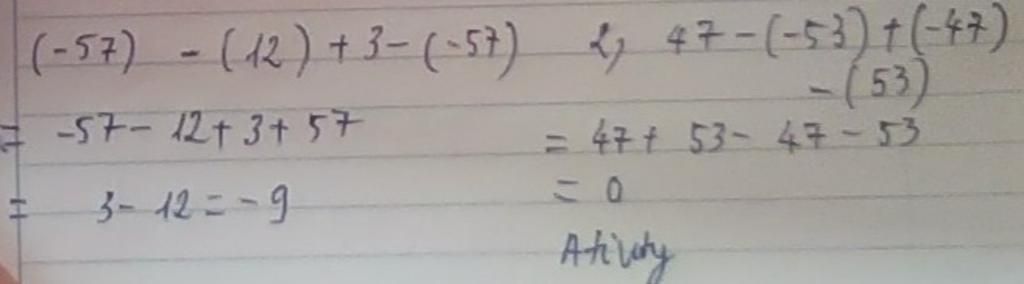 (-57) - (12) + 3 - (-57)
= -57 - 12 + 3 + 57
= 3 - 12 = -9
2, 47 - (-53) + (-47)
- (53)
= 47 + 53 - 47 - 53
= 0